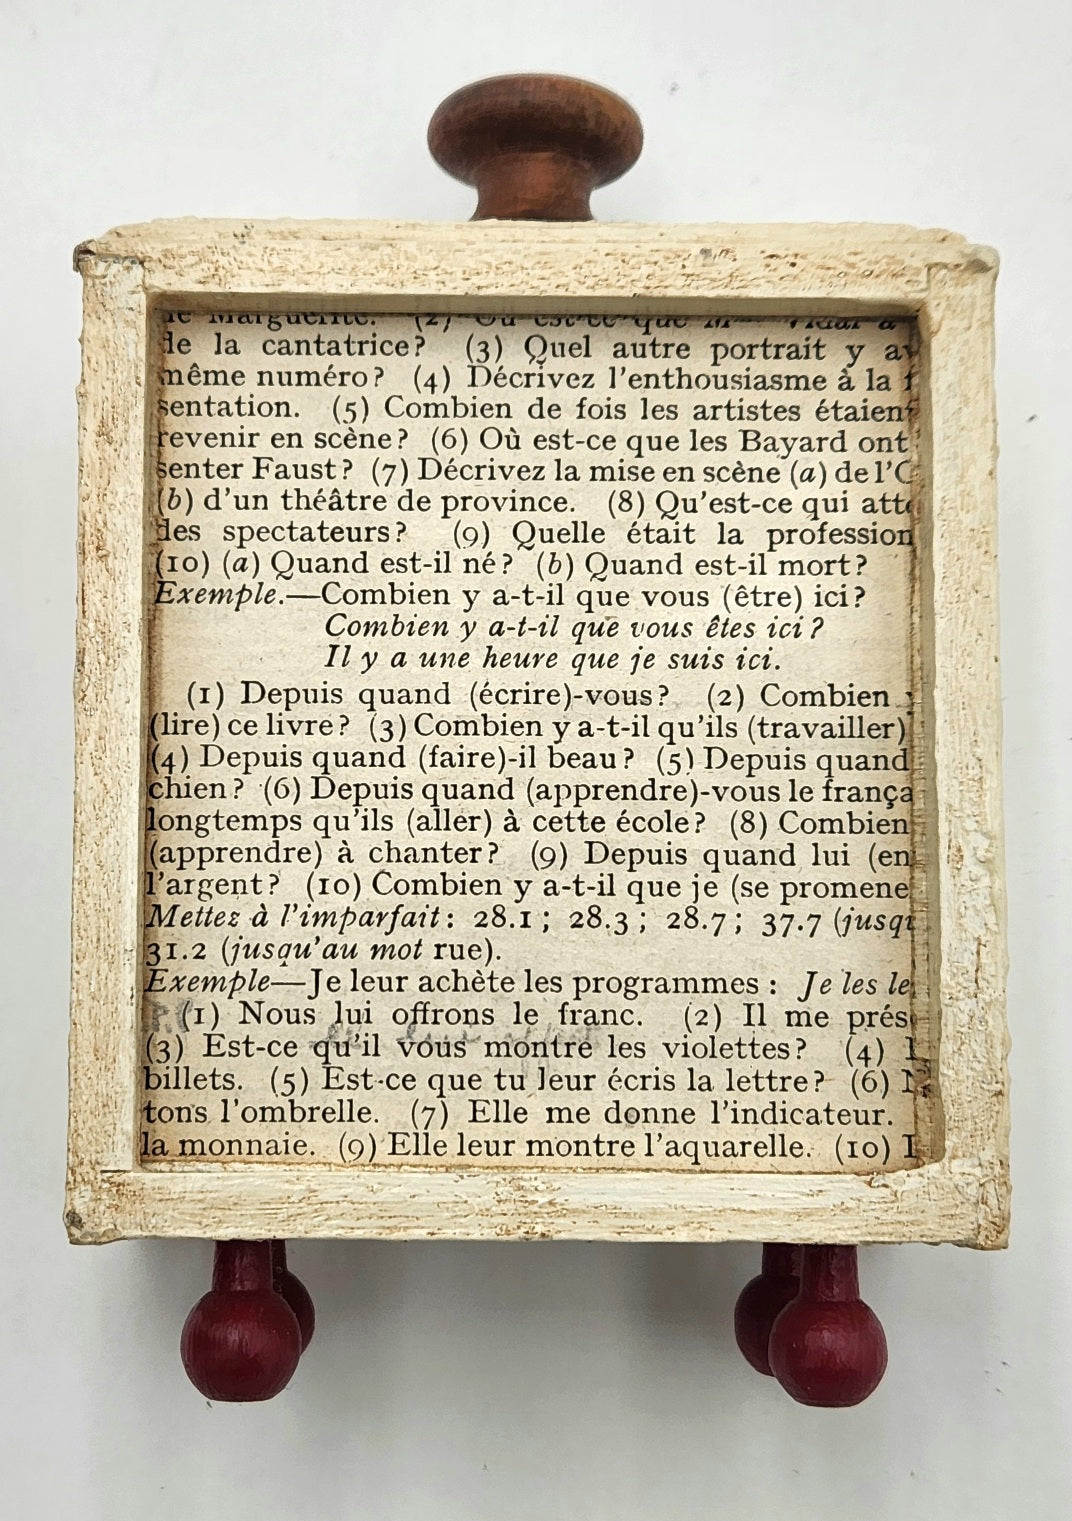 Marguerite. (2) Où est-ce que
de la cantatrice? (3) Quel autre portrait y
même numéro? (4) Décrivez l'enthousiasme à la
sentation. (5) Combien de fois les artistes étaient
revenir en scène? (6) Où est-ce que les Bayard ont
senter Faust? (7) Décrivez la mise en scène (a) de
(b) d'un théâtre de province. (8) Qu'est-ce qui
des spectateurs? (9) Quelle était la profession
(10) (a) Quand est-il né? (b) Quand est-il mort?
Exemple.—Combien y a-t-il que vous (être) ici?
Combien y a-t-il que vous êtes ici?
Il y a une heure que je suis ici.
(1) Depuis quand (écrire)-vous? (2) Combien
(lire) ce livre? (3) Combien y a-t-il qu'ils (travailler)
(4) Depuis quand (faire)-il beau? (5) Depuis quand
chien? (6) Depuis quand (apprendre)-vous le frança
longtemps qu'ils (aller) à cette école? (8) Combien
(apprendre) à chanter? (9) Depuis quand lui (en
l'argent? (10) Combien y a-t-il que je (se promene
Mettez à l'imparfait: 28.1; 28.3; 28.7; 37.7 (jusqu
31.2 (jusqu'au mot rue).
Exemple—Je leur achète les programmes: Je les le
(1) Nous lui offrons le franc. (2) Il me prés
(3) Est-ce qu'il vous montre les violettes? (4)
billets. (5) Est-ce que tu leur écris la lettre? (6)
tons l'ombrelle. (7) Elle me donne l'indicateur.
la monnaie. (9) Elle leur montre l'aquarelle. (10)